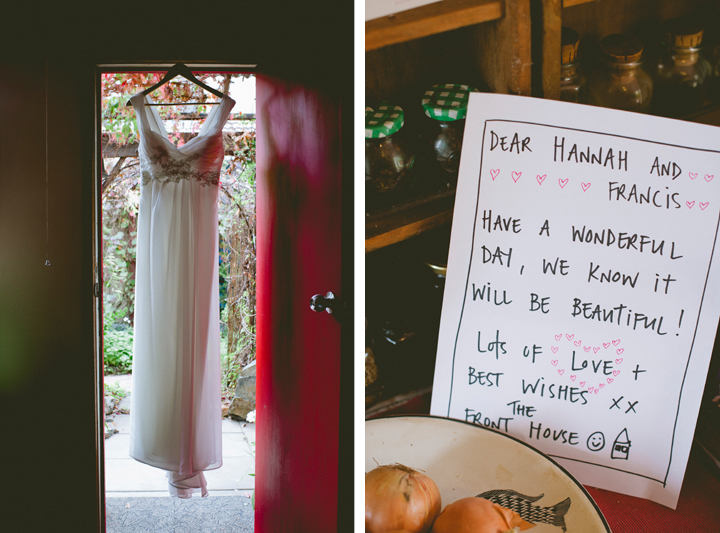 DEAR HANNAH AND
FRANCIS
HAVE A WONDERFUL
DAY, WE KNOW IT
WILL BE BEAUTIFUL!
LOTS OF LOVE +
BEST WISHES XX
THE
FRONT HOUSE